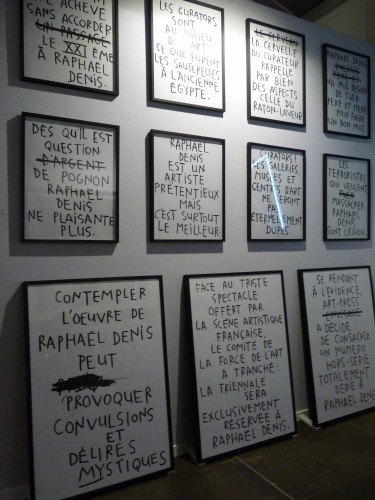 ACHÈVE
SANS ACCORDER
UN PASSAGE
LE XXIÈME
À RAPHAËL
DENIS.
LES CURATORS
SONT
AU MILIEU
D'ART
CE QUE FURENT
LES SAUTERELLES
À L'ANCIENNE
ÉGYPTE.
LE CERVEAU
LA CERVELLE
DU CURATEUR
RAPPELLE
PAR BIEN
DES ASPECTS
CELLE DU
RATON-LAVEUR
RAPHAËL DENIS
N'A NUL BESOIN
DE TUER
PÈRE ET MÈRE
POUR FAIRE
UN BON MOT
DÈS QU'IL EST
QUESTION
D'ARGENT
DE POGNON
RAPHAËL
DENIS
NE PLAISANTE
PLUS.
RAPHAËL
DENIS
EST UN
ARTISTE
PRÉTENTIEUX
MAIS
C'EST SURTOUT
LE MEILLEUR.
CURATORS!
LES GALERIES,
MUSÉES ET
CENTRES D'ART
NE SERONT
PAS
ÉTERNELLEMENT
DUPES.
LES
TERRORISTES
QUI VEULENT
MASSACRER
RAPHAËL
DENIS
SONT LÉGION.
CONTEMPLER
L'OEUVRE DE
RAPHAËL DENIS
PEUT
PROVOQUER
CONVULSIONS
ET
DÉLIRES
MYSTIQUES
FACE AU TRISTE
SPECTACLE
OFFERT PAR
LA SCÈNE ARTISTIQUE
FRANÇAISE,
LE COMITÉ DE
LA FORCE DE L'ART
A TRANCHÉ:
LA TRIENNALE
SERA
EXCLUSIVEMENT
RÉSERVÉE À
RAPHAËL DENIS.
SE RENDANT
À L'ÉVIDENCE,
ART-PRESS
ENVISAGE
A DÉCIDÉ
DE CONSACRER
UN NUMÉRO
HORS-SÉRIE
TOTALEMENT
DÉDIÉ À
RAPHAËL DENIS.